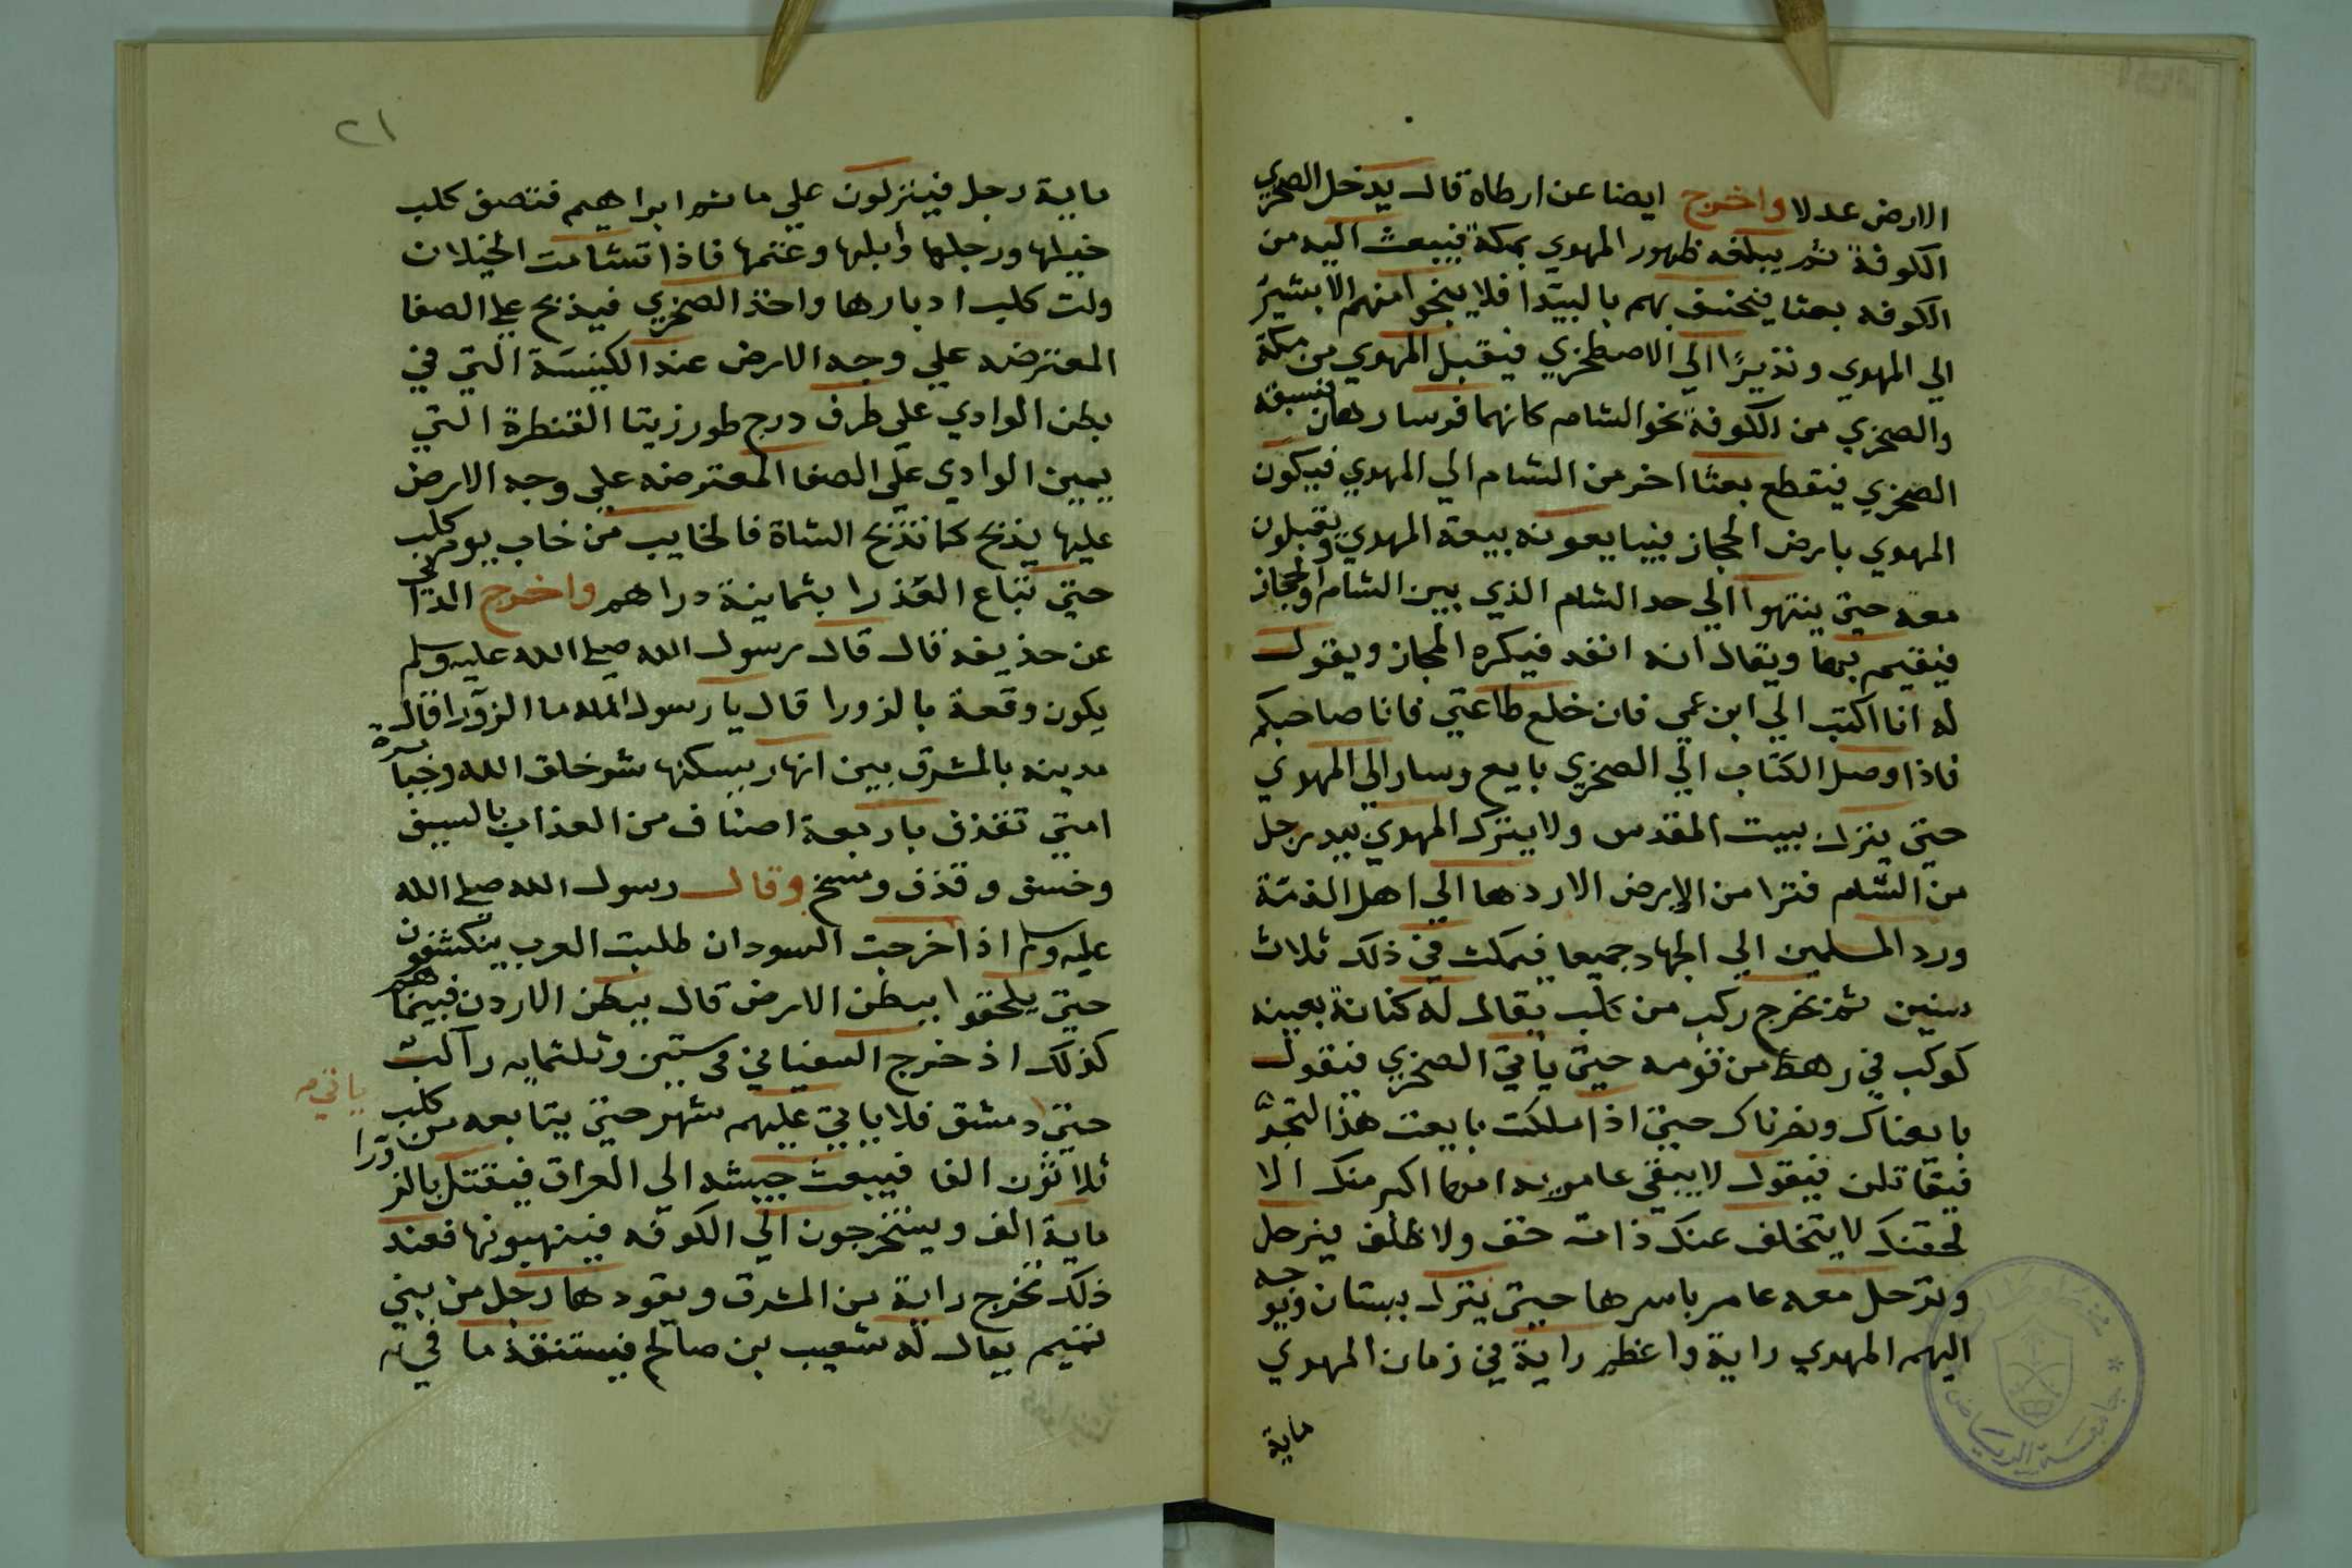 الارض عدلا واخرج ايضا عن ارطاة قال يدخل الصخري
الكوفة ثم يبلغه ظهور المهدي بمكة فيبعث اليه من
الكوفه بعثا يخسف بهم بالبيدا فلا ينجوا منهم الا بشير
الي المهدي ونذيرا الي الاصطخري فيقبل المهدي من مكة
والصخري من الكوفة نحو الشام كانهما فرسا رهان فيسبقه
الصخري فيقطع بعثا اخر من الشام الي المهدي فيكون
المهدي بارض الحجاز فيبايعونه بيعة المهدي ويقبلون
معه حتي ينتهوا الي حد الشام الذي بين الشام والحجاز
فيقيم بها ويقال انه انفد فيكره المجاز ويقول
له انا اكتب الي ابن عمي فان خلع طاعتي فانا صاحبكم
فاذا وصل الكتاب الي الصخري بايع وسار الي المهدي
حتي ينزل بيت المقدس ولا يترك المهدي بيد رجل
من الشام فترا من الارض الا ردها الي اهل الذمة
ورد المسلمين الي الجهاد جميعا فيمكث في ذلك ثلاث
سنين ثم يخرج ركب من كلب يقال له كنانة بعينه
كوكب في رهط من قومه حتي ياتي الصخري فيقول
بايعناك ونصرناك حتي اذا ملكت بايعت هذا
فيقاتلن فيقول لا يبقي امها اكبر منك الا
لحقتك لا يتخلف عنك ذات خف ولا ظلف فيرحل
وترحل معه عامر باسرها حتي ينزل ببستان ويوجه
اليهم المهدي راية واعظم راية في زمان المهدي
ماية
٢١
ماية رجل فينزلون علي ما ثم ابراهيم فتصف كلب
خيلها ورجلها وابلها وغنمها فاذا تشامت الخيلان
ولت كلب ادبارها واخذ الصخري فيذبح علي الصفا
المعترضه علي وجه الارض عند الكنيسة التي في
بطن الوادي علي طرف درج طور زيتا القنطرة التي
يمين الوادي علي الصفا المعترضه علي وجه الارض
عليها يذبح كما تذبح الشاة فالخايب من خاب يوم كلب
حتي تباع العذرا بثمانية دراهم واخرج الداني
عن حذيفه قال قال رسول الله صلي الله عليه وسلم
يكون وقعة بالزورا قال يا رسول الله ما الزورا قال
مدينه بالمشرق بين انهار يسكنها شر خلق الله وجبابرة
امتي تقذف باربعة اصناف من العذاب بالسيف
وخسف وقذف ومسخ وقال رسول الله صلي الله
عليه وسلم اذا خرجت السودان طلبت العرب ينكشفون
حتي يلحقوا ببطن الارض قال ببطن الاردن فبينما هم
كذلك اذ خرج السفياني في ستين وثلثمايه راكب
ياتي
حتي دمشق فلا ياتي عليهم شهر حتي يتابعه من كلب
ثلاثون الفا فيبعث جيشه الي العراق فيقتل بالزورا
ماية الف ويتخرجون الي الكوفه فينهبونها فعند
ذلك تخرج راية من المشرق ويقودها رجل من بني
تميم يقال له شعيب بن صالح فيستنقذ ما في
جامعة الرياض